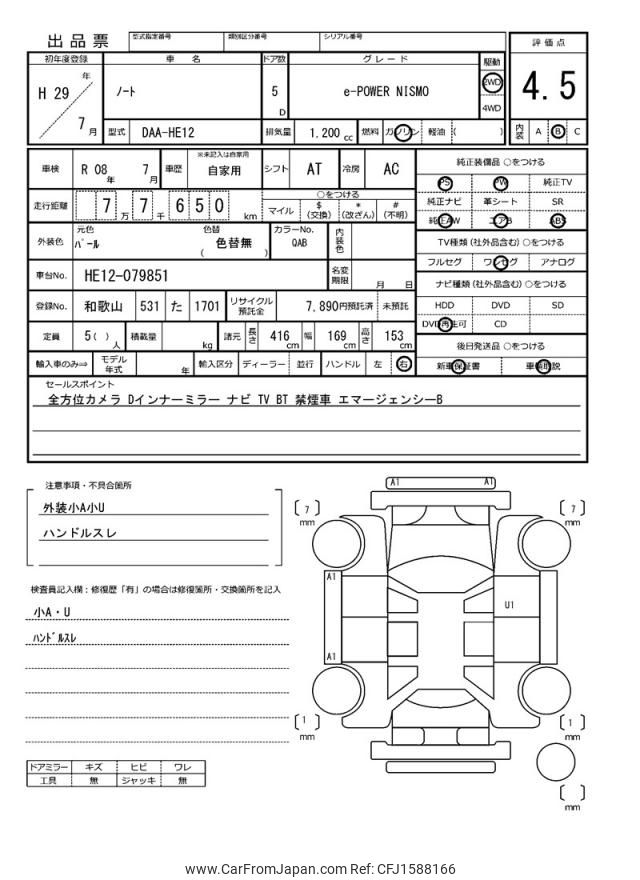 出品票
型式指定番号 類別区分番号 シリアル番号
評価点
4.5
内装 A B C
初年度登録 車名 ドア数 グレード 駆動
H 29 年 7 月
ノート
5 D
e-POWER NISMO
2WD
4WD
型式 DAA-HE12 排気量 1.200 cc 燃料 ガソリン 軽油 ( )
車検 R 08 年 7 月 車歴 ※未記入は自家用 自家用 シフト AT 冷房 AC
走行距離 7 万 7 千 6 5 0 km
○をつける
マイル $ (交換) * (改ざん) # (不明)
外装色 元色 パール 色替 色替無 ( )
カラーNo. QAB 内装色
車台No. HE12-079851 名変期限 月 日
登録No. 和歌山 531 た 1701 リサイクル預託金 7,890円預託済 未預託
定員 5( ) 人 積載量 kg 諸元 長さ 416 cm 幅 169 cm 高さ 153 cm
輸入車のみ⇒ モデル年式 年 輸入区分 ディーラー 並行 ハンドル 左 右
純正装備品 ○をつける
PS PW 純正TV
純正ナビ 革シート SR
純正AW エアB ABS
TV種類 (社外品含む) ○をつける
フルセグ ワンセグ アナログ
ナビ種類 (社外品含む) ○をつける
HDD DVD SD
DVD再生可 CD
後日発送品 ○をつける
新車保証書 車輌取説
セールスポイント
全方位カメラ Dインナーミラー ナビ TV BT 禁煙車 エマージェンシーB
注意事項・不具合箇所
外装小A小U
ハンドルスレ
検査員記入欄：修復歴「有」の場合は修復箇所・交換箇所を記入
小A・U
ハンドルスレ
ドアミラー キズ ヒビ ワレ
工具 無 ジャッキ 無
A1 A1
[ 7 ] mm
[ 7 ] mm
A1
U1
A1
[ 1 ] mm
[ 1 ] mm
[ ] mm
www.CarFromJapan.com Ref: CFJ1588166